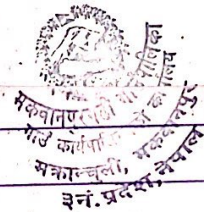 मकवानपुरगढी गाउँपालिका
गाउँ कार्यपालिकाको कार्यालय
मक्रान्चुली, मकवानपुर
३नं. प्रदेश, नेपाल